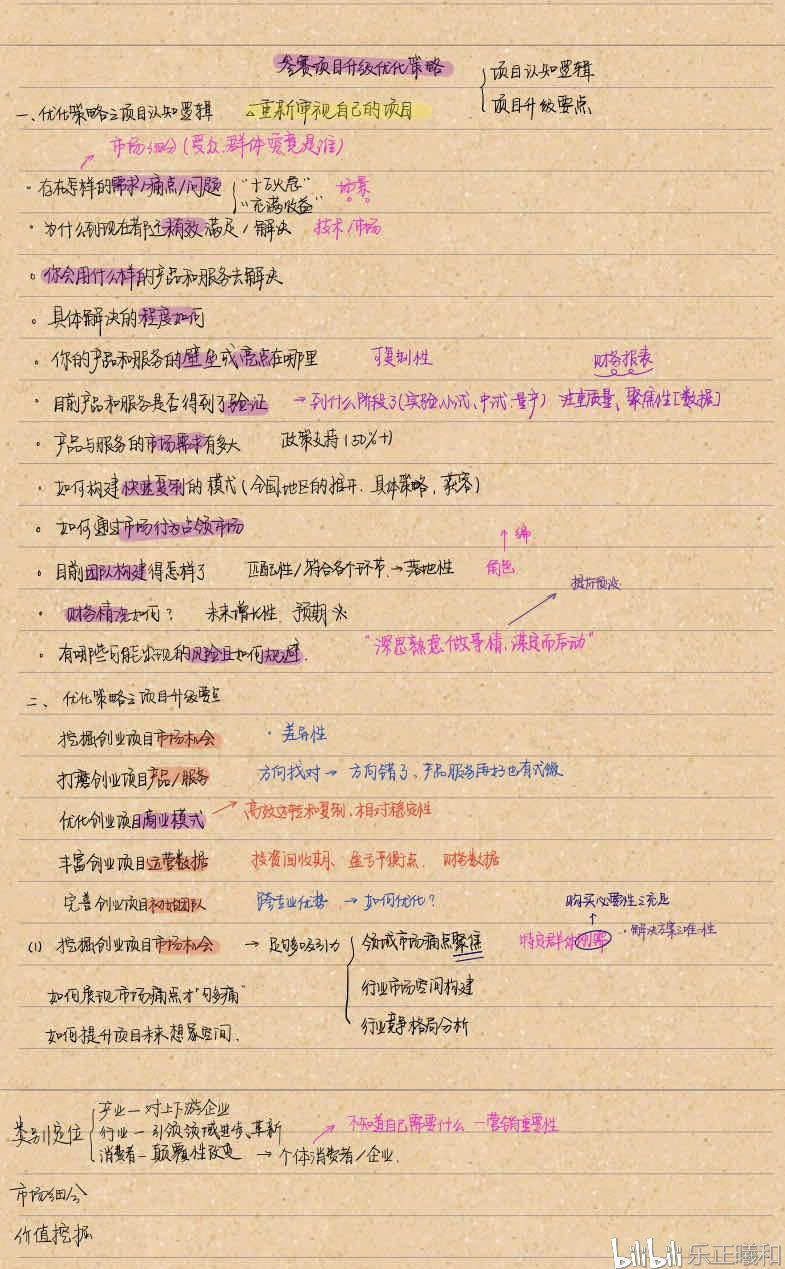 参赛项目升级优化策略
项目认知逻辑
项目升级要点
一、优化策略之项目认知逻辑 △重新审视自己的项目
市场细分(受众.群体究竟是谁)
· 存在怎样的需求/痛点/问题 "十万火急" 场景
"充满收益"
· 为什么到现在都还没有效满足/解决 技术/市场
。你会用什么样的产品和服务去解决
。具体解决的程度如何
。你的产品和服务的壁垒或亮点在哪里 可复制性 财务报表
· 目前产品和服务是否得到了验证 →到什么阶段了(实验、小试、中试.量产) 注重质量,聚焦性[数据]
· 产品与服务的市场需求有多大 政策支持(30%↑)
· 如何构建快速复制的模式(全国.地区的推开.具体策略,获客)
。如何通过市场行为占领市场
编
。目前团队构建得怎样了 匹配性/符合各个环节.→落地性 角色
· 财务情况如何? 未来增长性、预期
。有哪些可能出现的风险且如何规避. "深思熟虑做事情,谋定而后动"
二、优化策略之项目升级要点
挖掘创业项目市场机会 · 差异性
打磨创业项目产品/服务 方向找对→ 方向错了、产品服务再好也有式微
优化创业项目商业模式 高效运转和复制、相对稳定性
丰富创业项目运营数据 投资回收期、盈亏平衡点、财务数据
完善创业项目初始团队 跨专业优势 → 如何优化? 购买必要性之充足
(1) 挖掘创业项目市场机会 → 足够吸引力 领域市场痛点聚焦 特定群体刚需 ·解决方案之唯一性
如何展现市场痛点才"够痛" 行业市场空间构建
如何提升项目未来想象空间. 行业竞争格局分析
类别定位 产业一对上下游企业
行业一引领领域进步、革新 不知道自己需要什么 一营销重要性
消费者一颠覆性改变 → 个体消费者/企业.
市场细分
价值挖掘
bilibili 乐正曦和